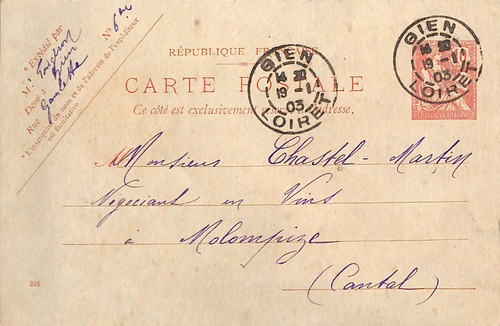 * Expédié par
M.
Demt à Gien
Rue Gambetta
N° 6
* L'inscription du nom et de l'adresse de l'expéditeur
est facultative.
RÉPUBLIQUE FRANÇAISE
CARTE POSTALE
Ce côté est exclusivement réservé à l'adresse.
GIEN
19 -1
03
LOIRET
GIEN
19 -1
03
LOIRET
Monsieur Chastel-Martin
Negociant en Vins
à Molompize
(Cantal)